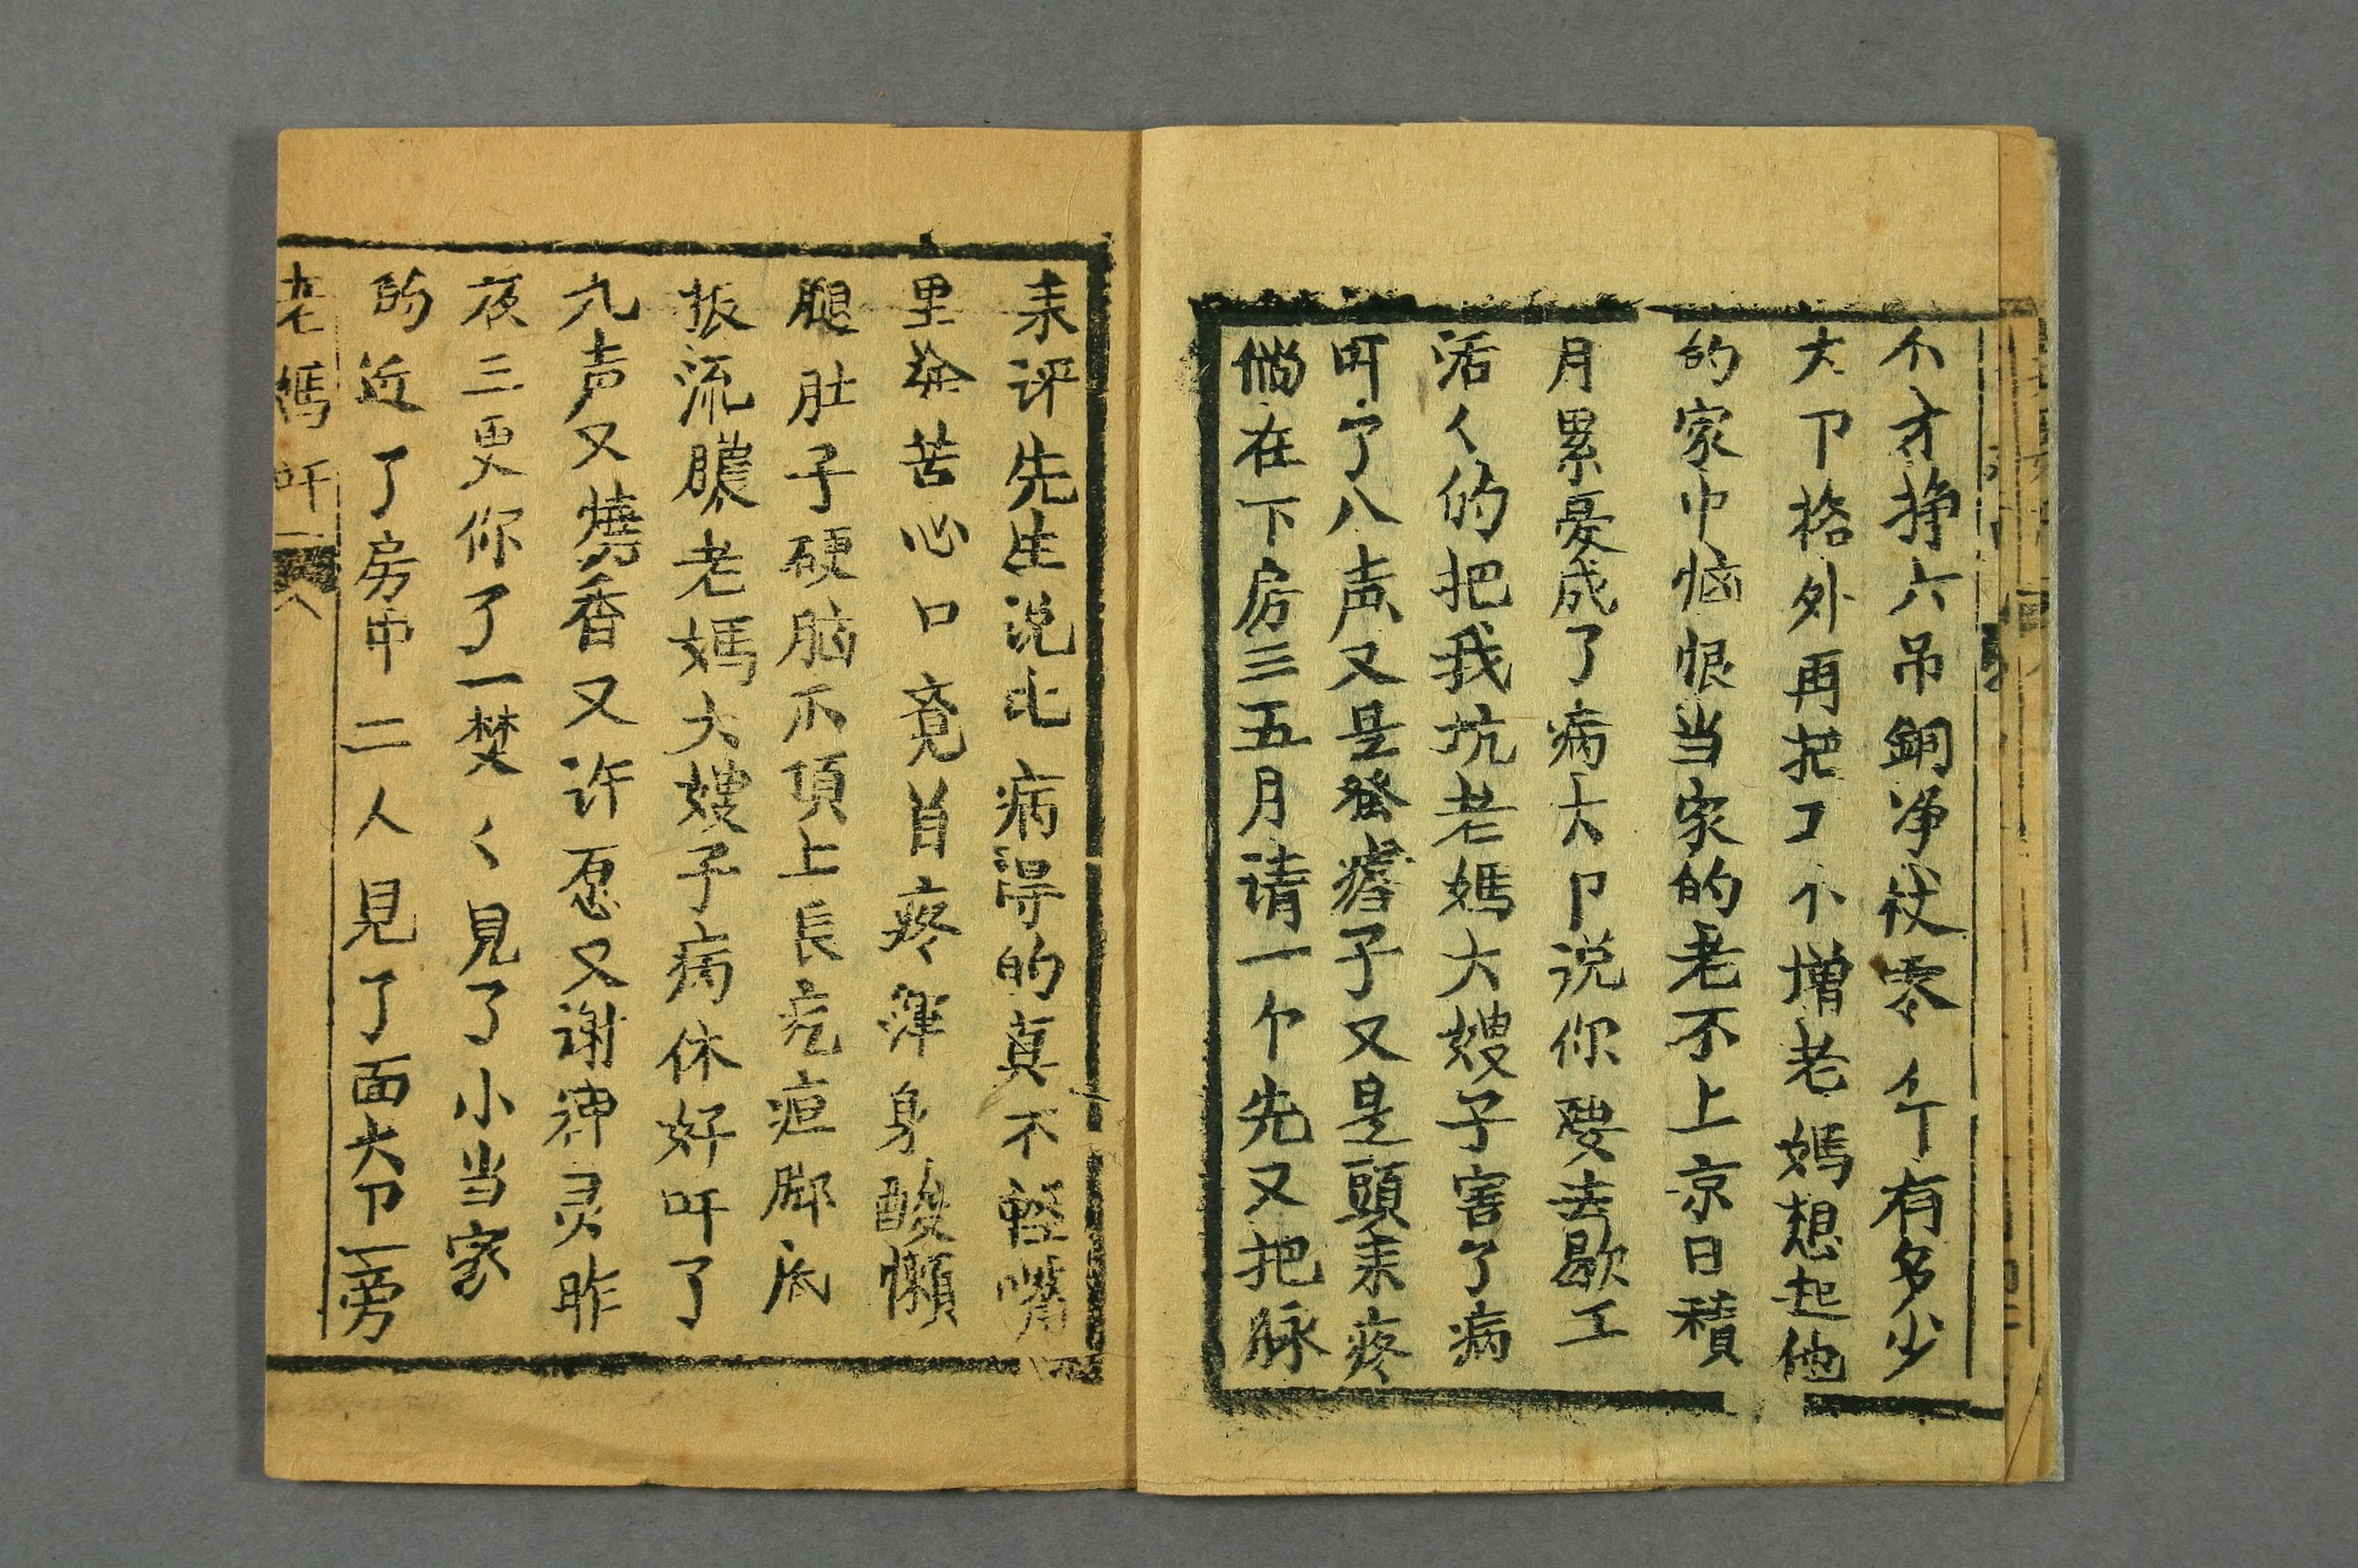 不才挣六吊銅净仗零仒有多少
大卩格外再把工个增老媽想起他
的家中恼恨当家的老不上京日積
月累憂成了病大卩说你要去歇工
活く的把我坑老媽大嫂子害了病
吁了八声又是發瘧子又是頭耒疼
倘在下房三五月请一个先又把脉
耒评先生说此病得的真不轻嘴
里發苦心口竟首疼渾身酸懒
腿肚子硬脑爪頂上長疙疸脚底
板流膿老媽大嫂子病休好吁了
九声又燒香又许愿又谢神灵昨
夜三更你了一梦く見了小当家
的近了房中二人見了面大卩一旁
老媽吁 八